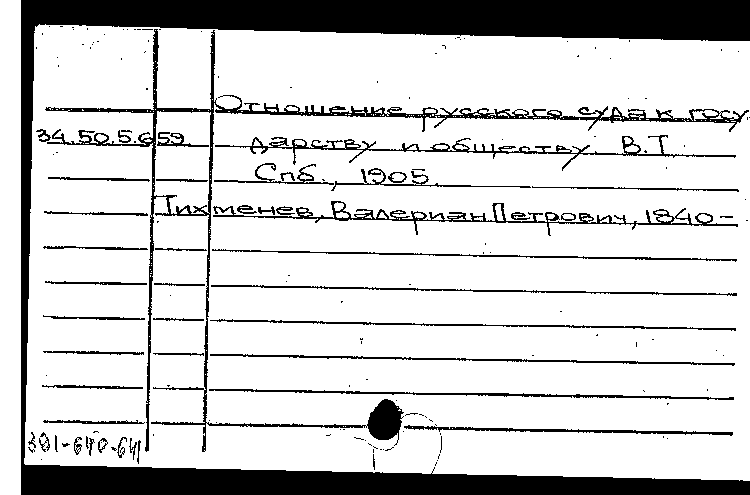 Отношение русского суда к госу-
34.50.5.659. дарству и обществу. В.Т.
Спб., 1905.
Тихменев, Валериан Петрович, 1840-
381-640-641